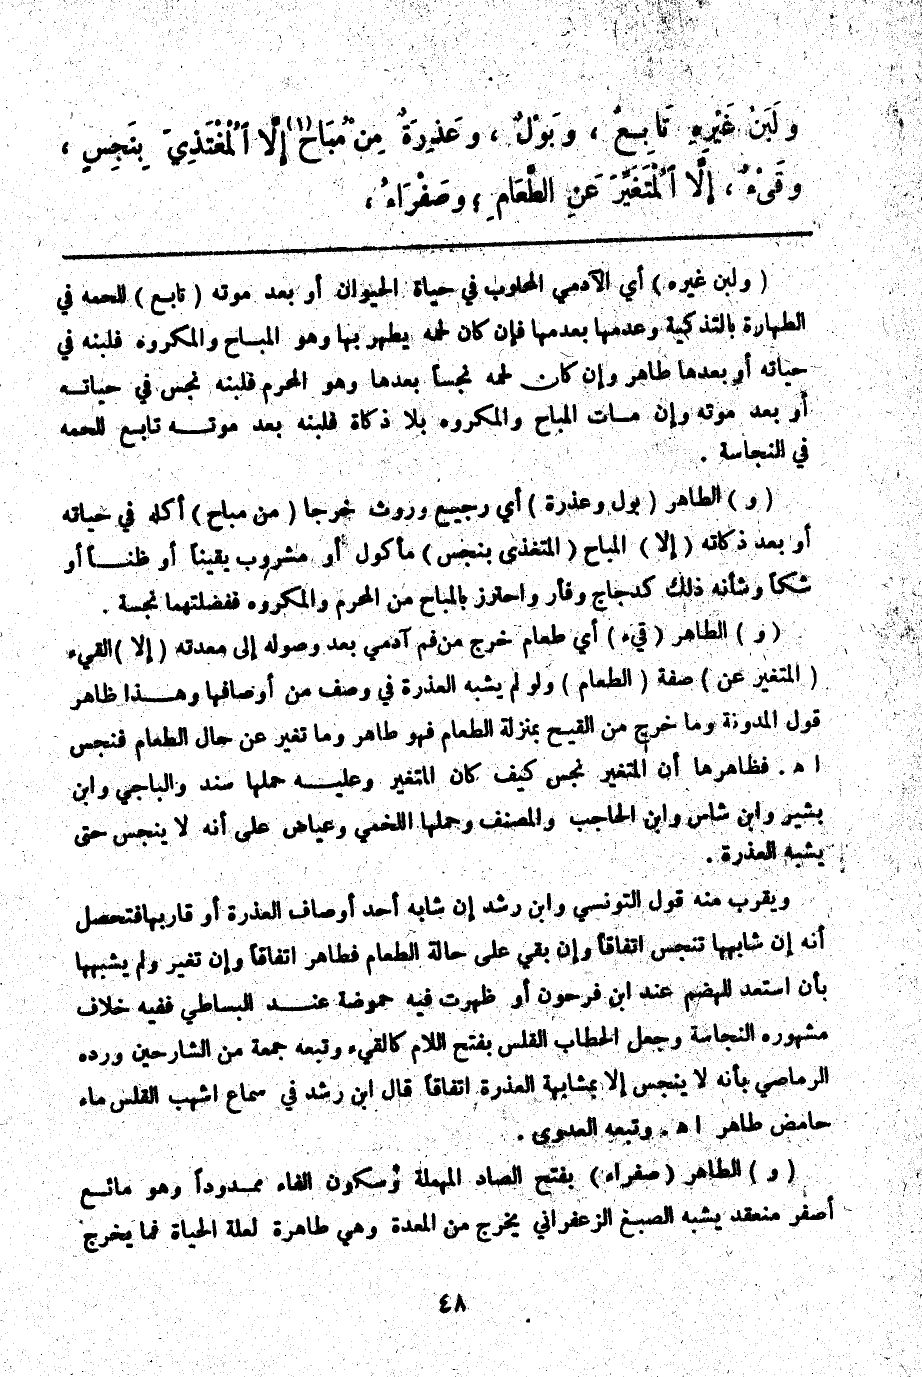 ولَبَنُ غَيْرِهِ تَابِعٌ ، وبَوْلٌ ، وعَذِرَةٌ مِنْ مُبَاحٍ (١) إِلَّا ٱلْمُغْتَذِيَ بِنَجِسٍ ،
وقَيْءٌ ، إِلَّا ٱلْمُتَغَيِّرَ عَنِ الطَّعَامِ ؛ وصَفْرَاءُ ،
( ولبن غيره ) أي الآدمي المحلوب في حياة الحيوان أو بعد موته ( تابع ) للحمه في
الطهارة بالتذكية وعدمها بعدمها فإن كان لحمه يطهر بها وهو المباح والمكروه فلبنه في
حياته أو بعدها طاهر وإن كان لحمه نجساً بعدها وهو المحرم فلبنه نجس في حياته
أو بعد موته وإن مات المباح والمكروه بلا ذكاة فلبنه بعد موته تابع للحمه
في النجاسة .
( و ) الطاهر ( بول وعذرة ) أي رجيع وروث خرجا ( من مباح ) أكله في حياته
أو بعد ذكاته ( إلا ) المباح ( المتغذى بنجس ) مأكول أو مشروب يقيناً أو ظناً أو
شكاً وشأنه ذلك كدجاج وفأر واحترز بالمباح من المحرم والمكروه ففضلتهما نجسة .
( و ) الطاهر ( قيء ) أي طعام خرج من فم آدمي بعد وصوله إلى معدته ( إلا ) القيء
( المتغير عن ) صفة ( الطعام ) ولو لم يشبه العذرة في وصف من أوصافها وهذا ظاهر
قول المدونة وما خرج من القيح بمنزلة الطعام فهو طاهر وما تغير عن حال الطعام فنجس
ا ه . فظاهرها أن المتغير نجس كيف كان المتغير وعليه حملها سند والباجي وابن
بشير وابن شاس وابن الحاجب والمصنف وحملها اللخمي وعياض على أنه لا ينجس حتى
يشبه العذرة .
ويقرب منه قول التونسي وابن رشد إن شابه أحد أوصاف العذرة أو قاربها فتحصل
أنه إن شابهها تنجس اتفاقاً وإن بقي على حالة الطعام فطاهر اتفاقاً وإن تغير ولم يشبهها
بأن استعد للهضم عند ابن فرحون أو ظهرت فيه حموضة عند البساطي ففيه خلاف
مشهوره النجاسة وجعل الحطاب القلس بفتح اللام كالقيء وتبعه جمعة من الشارحين ورده
الرماصي بأنه لا ينجس إلا بمشابهة العذرة اتفاقاً قال ابن رشد في سماع اشهب القلس ماء
حامض طاهر ا ه . وتبعه العدوي .
( و ) الطاهر ( صفراء ) بفتح الصاد المهملة وسكون الفاء ممدوداً وهو مائع
أصفر منعقد يشبه الصبغ الزعفراني يخرج من المعدة وهي طاهرة لعلة الحياة فما يخرج
٤٨